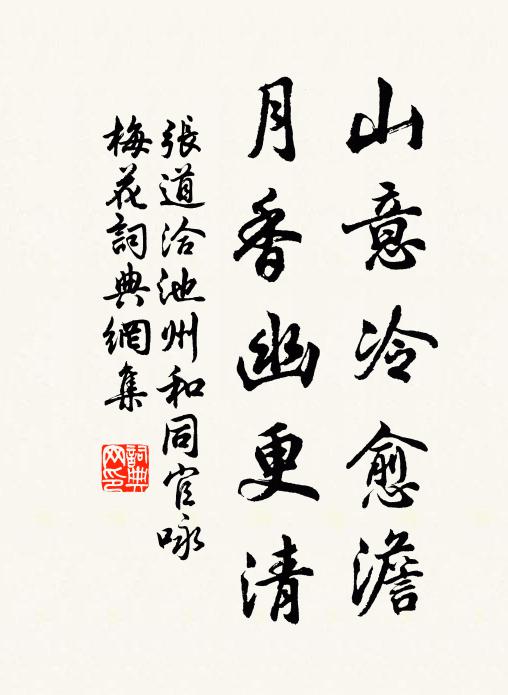 山意冷愈澹
月香幽更清
張道洽池州和同官咏
梅花詞典網集
詞典
网印